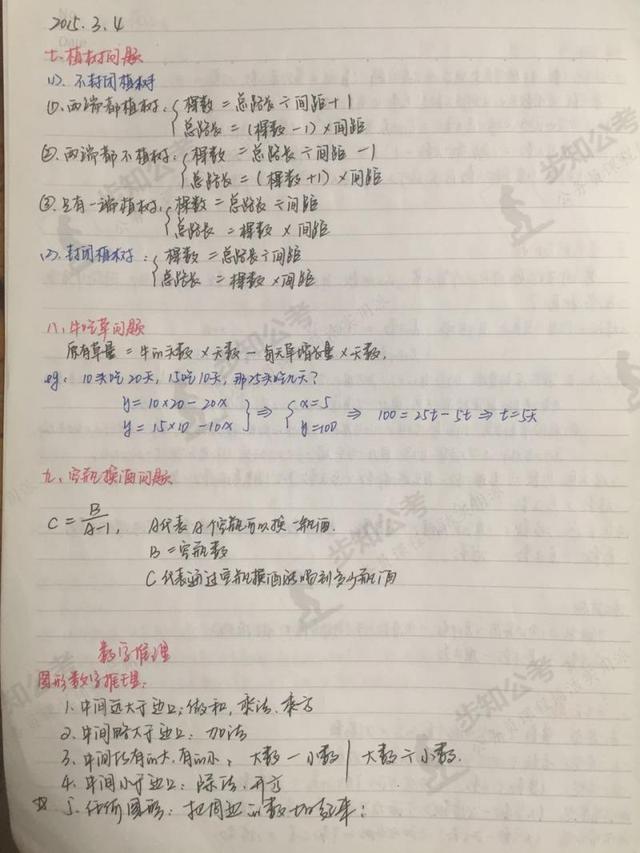 2015.3.4
七、植树问题
(1). 不封闭植树
①. 两端都植树: 棵数 = 总路长 ÷ 间距 + 1
总路长 = (棵数 - 1) × 间距
②. 两端都不植树: 棵数 = 总路长 ÷ 间距 - 1
总路长 = (棵数 + 1) × 间距
③. 只有一端植树: 棵数 = 总路长 ÷ 间距
总路长 = 棵数 × 间距
(2). 封闭植树: 棵数 = 总路长 ÷ 间距
总路长 = 棵数 × 间距
八、牛吃草问题
原有草量 = 牛的头数 × 天数 - 每天草增长量 × 天数.
eg: 10头吃20天, 15吃10天, 那25头吃几天?
y = 10×20 - 20x
y = 15×10 - 10x ⇒ x=5 y=100 ⇒ 100 = 25t - 5t ⇒ t=5天
九、空瓶换酒问题
C = B/(A-1), A代表A个空瓶可以换一瓶酒.
B = 空瓶数
C代表通过空瓶换酒能喝到多少瓶酒
数字推理
图形数字推理:
1. 中间远大于边上: 做和, 乘法, 乘方
2. 中间略大于边上: 加法
3. 中间比有的大, 有的小: 大数 - 小数 | 大数 ÷ 小数.
4. 中间小于边上: 除法, 开方
☆ 5. 任何图形: 把周边的数
步知公考
步知公考
步知公考
步知公考